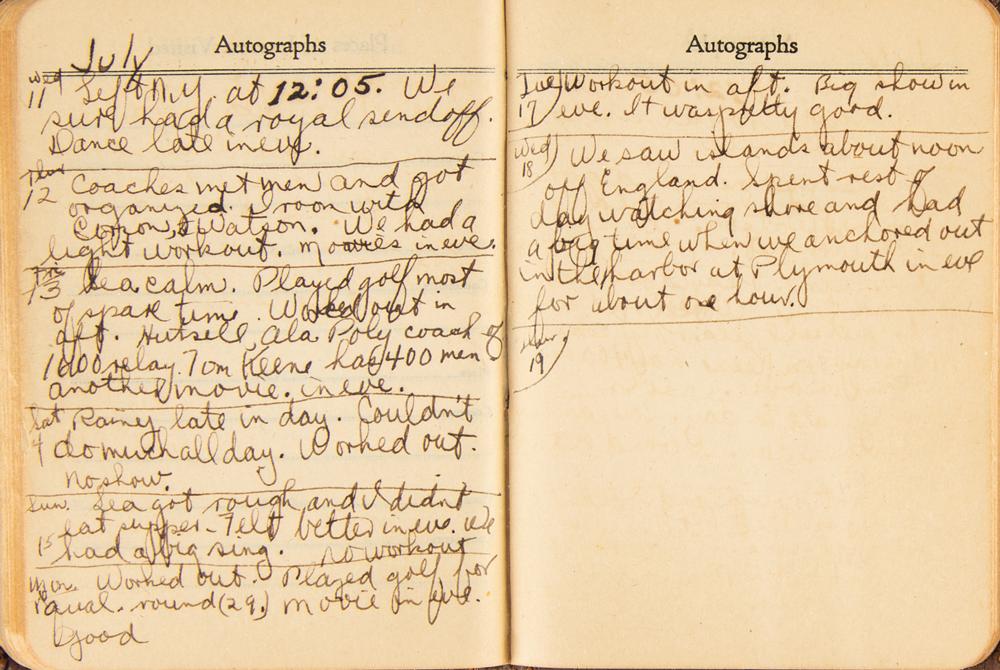 Autographs
July
Wed Left N.Y. at 12:05. We
11 sure had a royal sendoff.
Dance late in eve.
Thur Coaches met men and got
12 organized. I room with
& Watson. We had a
light workout. movies in eve.
Fri Sea calm. Played golf most
13 of spare time. Worked out in
aft. Hutsell, Ala Poly coach of
1600 relay. Tom Keene has 400 men
another movie. in eve.
Sat Rainey late in day. Couldn't
4 do much all day. Worked out.
No show.
Sun. Sea got rough and I didn't
eat supper - Felt better in eve. We
15 had a big sing. no workout
Mon. Worked out. Played golf for
qual. round (29.) movie in eve.
Good
Autographs
Tue Workout in aft. Big show in
17 eve. It was pretty good.
Wed We saw islands about noon
18 off England. Spent rest of
day watching shore and had
a big time when we anchored out
in the harbor at Plymouth in eve
for about one hour.
Thur.
19